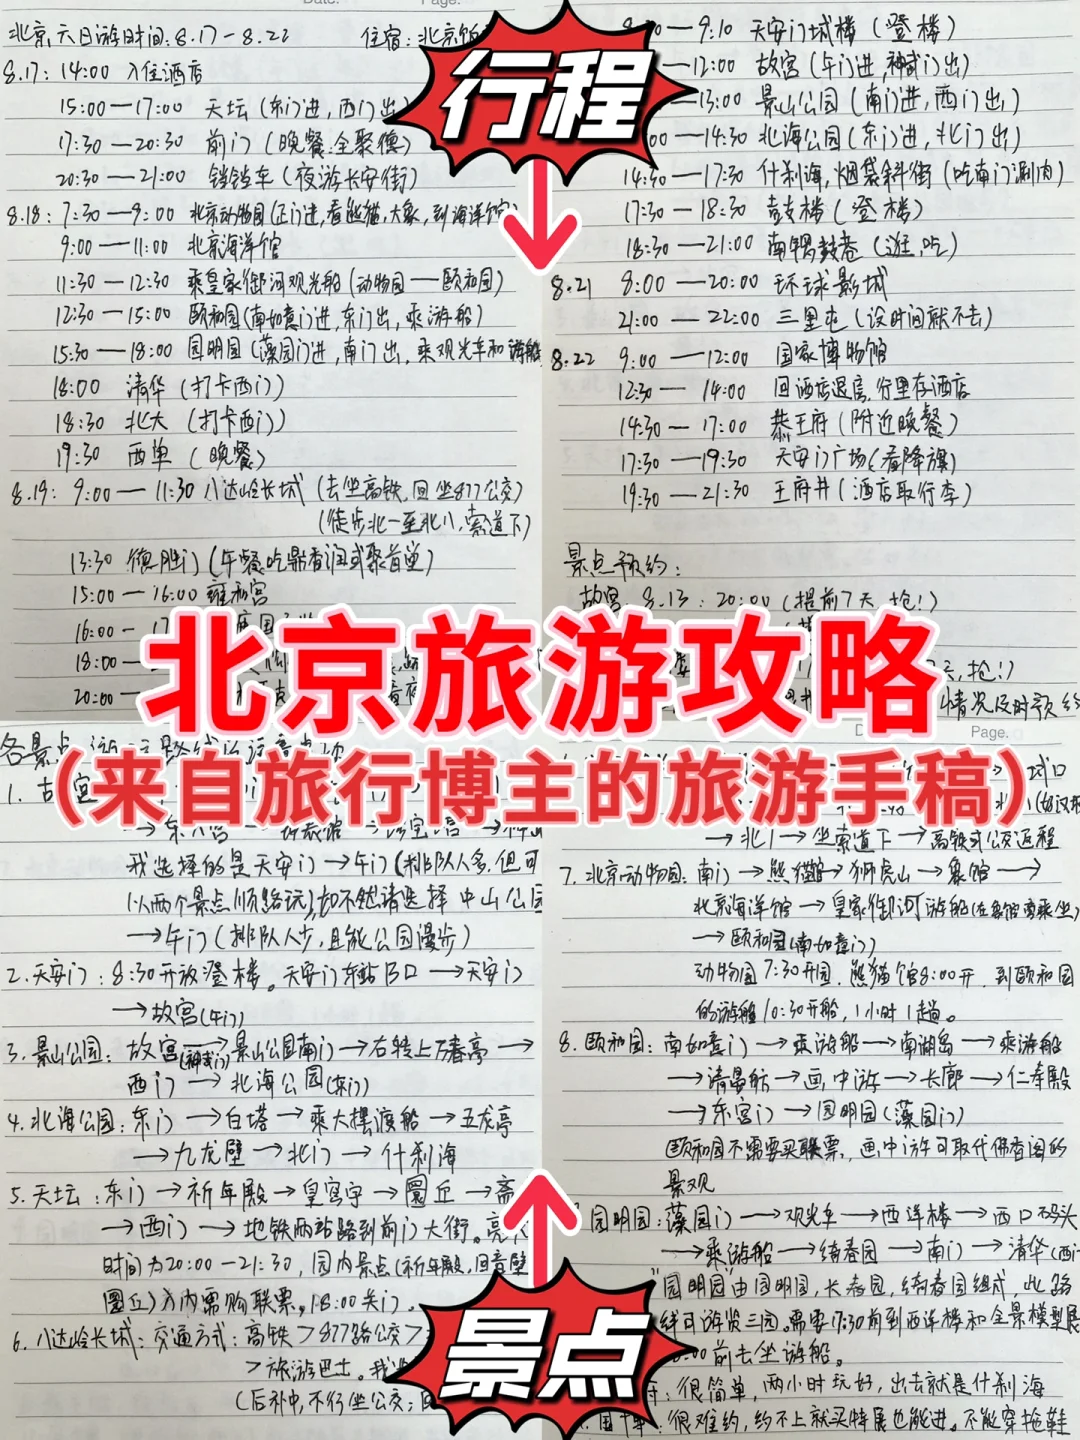 Date.
Page.
北京六日游时间:8.17-8.22 住宿:北京饭
8.17: 14:00 入住酒店
15:00—17:00 天坛(东门进,西门出)
17:30—20:30 前门(晚餐:全聚德)
20:30—21:00 铛铛车(夜游长安街)
8.18: 7:30—9:00 北京动物园(正门进,看熊猫,大象,到海洋馆)
9:00—11:00 北京海洋馆
11:30—12:30 乘皇家御河观光船(动物园——颐和园)
12:30—15:00 颐和园(南如意门进,东门出,乘游船)
15:30—18:00 园明园(藻园门进,南门出,乘观光车和游船
18:00 清华(打卡西门)
18:30 北大(打卡西门)
19:30 西单(晚餐)
8.19: 9:00—11:30 八达岭长城(去坐高铁,回坐877公交)
(徒步北一至北八,索道下)
13:30 德胜门(午餐,吃鼎香润或聚首堂)
15:00—16:00 雍和宫
16:00-17
18:00—
20:00—
行程
—9:10 天安门城楼(登楼)
—12:00 故宫(午门进,神武门出)
—13:00 景山公园(南门进,西门出)
00—14:30 北海公园(东门进,北门出)
14:30—17:30 什刹海,烟袋斜街(吃南门涮肉)
17:30-18:30 鼓楼(登楼)
18:30—21:00 南锣鼓巷(逛,吃)
8.21 8:00—20:00 环球影城
21:00—22:00 三里屯(没时间就不去)
8.22 9:00—12:00 国家博物馆
12:30—14:00 回酒店退房,行里存酒店
14:30—17:00 恭王府(附近晚餐)
17:30—19:30 天安门广场(看降旗)
19:30—21:30 王府井(酒店取行李)
景点预约:
故宫 8.13:20:00(提前7天,抢!)
天,抢!)
情况及时预约
北京旅游攻略
(来自旅行博主的旅游手稿)
各景点游玩路线以及注意事项
1. 古宫
我选择的是天安门→午门(排队人多,但可
以两个景点顺路玩),如不然请选择中山公园
→午门(排队人少,且能公园漫步)
2.天安门:8:30开放登楼。天安门东站B口→天安门
→故宫(午门)
3.景山公园:故宫(神武门)→景山公园南门→右转上万春亭→
西门→北海公园(东门)
4.北海公园:东门→白塔→乘大摆渡船→五龙亭
→九龙壁→北门→什刹海
5.天坛:东门→祈年殿→皇穹宇→圜丘→斋
→西门→地铁两站路到前门大街。亮
时间为20:00—21:30,园内景点(祈年殿,回音壁
圜丘)为内需购联票,18:00关门。
6.八达岭长城:交通方式:高铁>877路公交>
>旅游巴士。我
(后补中,不行坐公交;回
Page.
→北八→坐索道下→高铁或公交返程
7.北京动物园:南门→熊猫馆→狮虎山→象馆→
北京海洋馆→皇家御河游船(在象馆旁乘坐)
→颐和园(南如意门)
动物园7:30开园,熊猫馆8:00开,到颐和园
的游船10:30开船,1小时1趟。
8.颐和园:南如意门→乘游船→南湖岛→乘游船
→清晏舫→画中游→长廊→仁寿殿
→东宫门→园明园(藻园门)
颐和园不需要买联票,画中游可取代佛香阁的
景观
园明园:藻园门→观光车→西洋楼→西口码头
→乘游船→绮春园→南门→清华(西门
"园明园"由园明园,长春园,绮春园组成,此路
线可游览三园。需要17:30前到西洋楼和全景模型展
:00前去坐游船。
府:很简单,两小时玩好,出去就是什刹海
国博:很难约,约不上就买特展也能进。不能穿拖鞋
景点